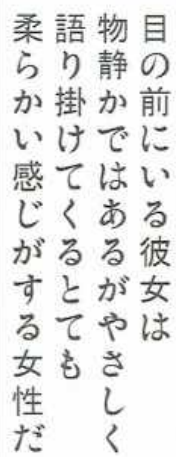 目の前にいる彼女は
物静かではあるがやさしく
語り掛けてくるとても
柔らかい感じがする女性だ